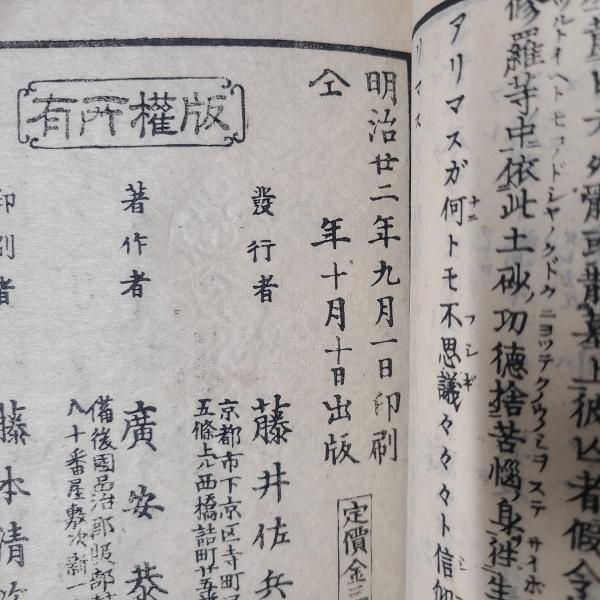 修羅等ノ中依此土砂ノ功徳捨苦惱ノ身往生
アリマスガ何トモ不思議々々々ト信仰
リマス
明治廿二年九月一日印刷
仝年十月十日出版
定價金三
版權所有
發行者 藤井佐兵
京都市下京区寺町
五條上ル西橋詰町廿五
著作者 廣安恭
備後國品治郡服部
八十番屋敷次新一
印刷者 藤本清